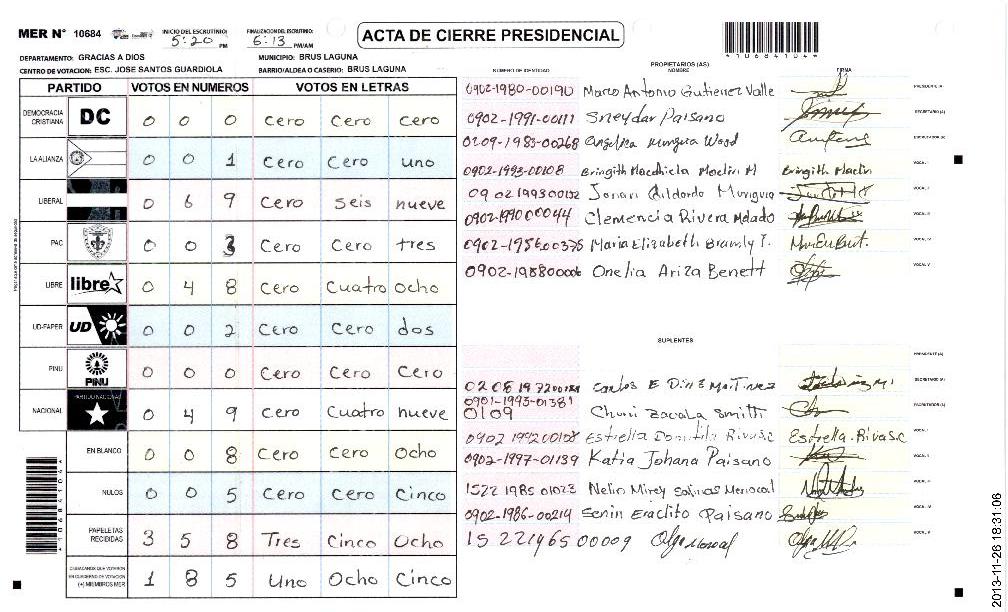 MER N° 10684
INICIO DEL ESCRUTINIO: 5:20 PM
FINALIZACION DEL ESCRUTINIO: 6:13 PM/AM
ACTA DE CIERRE PRESIDENCIAL
DEPARTAMENTO: GRACIAS A DIOS
MUNICIPIO: BRUS LAGUNA
CENTRO DE VOTACION: ESC. JOSE SANTOS GUARDIOLA
BARRIO/ALDEA O CASERIO: BRUS LAGUNA
PARTIDO VOTOS EN NUMEROS VOTOS EN LETRAS
DEMOCRACIA CRISTIANA DC 0 0 0 cero cero cero
LA ALIANZA 0 0 1 Cero Cero uno
LIBERAL 0 6 9 Cero Seis nueve
PAC 0 0 3 Cero Cero tres
LIBRE libre 0 4 8 Cero Cuatro Ocho
UD-FAPER UD 0 0 2 Cero Cero dos
PINU PINU 0 0 0 Cero Cero Cero
NACIONAL PARTIDO NACIONAL 0 4 9 Cero Cuatro nueve
EN BLANCO 0 0 8 Cero Cero Ocho
NULOS 0 0 5 Cero Cero Cinco
PAPELETAS RECIBIDAS 3 5 8 Tres Cinco Ocho
CIUDADANOS QUE VOTARON EN CUADERNO DE VOTACION (+) MIEMBROS MER 1 8 5 Uno Ocho Cinco
*10684104*
PROPIETARIOS (AS)
NUMERO DE IDENTIDAD NOMBRE FIRMA
0902-1980-00190 Marco Antonio Gutierrez Valle PRESIDENTE (A)
0902-1991-00111 Sneydar Paisano SECRETARIO (A)
0209-1983-00268 Angelica Munguia Wood ESCRUTADOR (A)
0902-1993-00108 Bringith Maclin M Bringith Maclin VOCAL I
Munguia VOCAL II
Clemencia Rivera VOCAL III
Maria Elizabeth VOCAL IV
Onelia Ariza Benett VOCAL V
SUPLENTES
PRESIDENTE (A)
Carlos E Martinez SECRETARIO (A)
0901-1993-01381
0109 Zacala Smith ESCRUTADOR (A)
Estrella Rivas C Estrella.Rivas C VOCAL I
0902-1997-01139 Katia Johana Paisano VOCAL II
1522 1985 01023 Mirey Salinas VOCAL III
0902-1986-00214 Senin Eraclito Paisano VOCAL IV
15 221965 00009 VOCAL V
*10684104*
2013-11-26 18:31:06